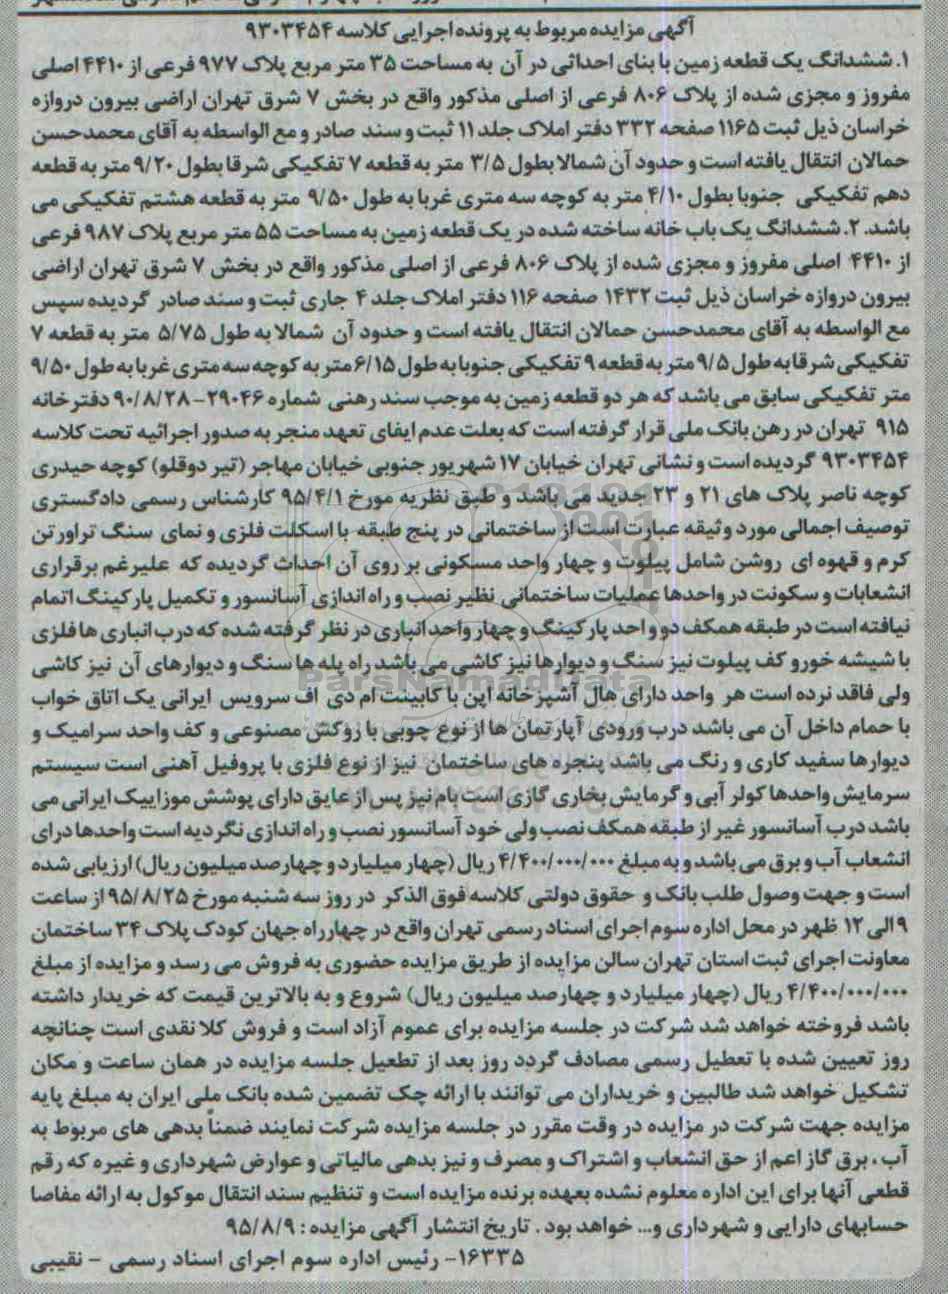 آگهی مزایده مربوط به پرونده اجرایی کلاسه ۹۳۰۳۴۵۴
۱. ششدانگ یک قطعه زمین با بنای احداثی در آن به مساحت ۳۵ متر مربع پلاک ۹۷۷ فرعی از ۴۴۱۰ اصلی
مفروز و مجزی شده از پلاک ۸۰۶ فرعی از اصلی مذکور واقع در بخش ۷ شرق تهران اراضی بیرون دروازه
خراسان ذیل ثبت ۱۱۶۵ صفحه ۳۳۲ دفتر املاک جلد ۱۱ ثبت و سند صادر و مع الواسطه به آقای محمدحسن
حمالان انتقال یافته است و حدود آن شمالا بطول ۳/۵ متر به قطعه ۷ تفکیکی شرقا بطول ۹/۲۰ متر به قطعه
دهم تفکیکی جنوبا بطول ۴/۱۰ متر به کوچه سه متری غربا به طول ۹/۵۰ متر به قطعه هشتم تفکیکی می
باشد. ۲. ششدانگ یک باب خانه ساخته شده در یک قطعه زمین به مساحت ۵۵ متر مربع پلاک ۹۸۷ فرعی
از ۴۴۱۰ اصلی مفروز و مجزی شده از پلاک ۸۰۶ فرعی از اصلی مذکور واقع در بخش ۷ شرق تهران اراضی
بیرون دروازه خراسان ذیل ثبت ۱۴۳۲ صفحه ۱۱۶ دفتر املاک جلد ۴ جاری ثبت و سند صادر گردیده سپس
مع الواسطه به آقای محمدحسن حمالان انتقال یافته است و حدود آن شمالا به طول ۵/۷۵ متر به قطعه ۷
تفکیکی شرقا به طول ۹/۵ متر به قطعه ۹ تفکیکی جنوبا به طول ۶/۱۵ متر به کوچه سه متری غربا به طول ۹/۵۰
متر تفکیکی سابق می باشد که هر دو قطعه زمین به موجب سند رهنی شماره ۲۹۰۴۶-۹۰/۸/۲۸ دفترخانه
۹۱۵ تهران در رهن بانک ملی قرار گرفته است که بعلت عدم ایفای تعهد منجر به صدور اجرائیه تحت کلاسه
۹۳۰۳۴۵۴ گردیده است و نشانی تهران خیابان ۱۷ شهریور جنوبی خیابان مهاجر (تیر دوقلو) کوچه حیدری
کوچه ناصر پلاک های ۲۱ و ۲۳ جدید می باشد و طبق نظریه مورخ ۹۵/۴/۱ کارشناس رسمی دادگستری
توصیف اجمالی مورد وثیقه عبارت است از ساختمانی در پنج طبقه با اسکلت فلزی و نمای سنگ تراورتن
کرم و قهوه ای روشن شامل پیلوت و چهار واحد مسکونی بر روی آن احداث گردیده که علیرغم برقراری
انشعابات و سکونت در واحدها عملیات ساختمانی نظیر نصب و راه اندازی آسانسور و تکمیل پارکینگ اتمام
نیافته است در طبقه همکف دو واحد پارکینگ و چهار واحد انباری در نظر گرفته شده که درب انباری ها فلزی
با شیشه خور و کف پیلوت نیز سنگ و دیوارها نیز کاشی می باشد راه پله ها سنگ و دیوارهای آن نیز کاشی
ParsNamadData
ولی فاقد نرده است هر واحد دارای هال آشپزخانه اپن با کابینت ام دی اف سرویس ایرانی یک اتاق خواب
با حمام داخل آن می باشد درب ورودی آپارتمان ها از نوع چوبی با روکش مصنوعی و کف واحد سرامیک و
دیوارها سفید کاری و رنگ می باشد پنجره های ساختمان نیز از نوع فلزی با پروفیل آهنی است سیستم
سرمایش واحدها کولر آبی و گرمایش بخاری گازی است بام نیز پس از عایق دارای پوشش موزاییک ایرانی می
باشد درب آسانسور غیر از طبقه همکف نصب ولی خود آسانسور نصب و راه اندازی نگردیه است واحدها درای
انشعاب آب و برق می باشد و به مبلغ ۴/۴۰۰/۰۰۰/۰۰۰ ریال (چهار میلیارد و چهارصد میلیون ریال) ارزیابی شده
است و جهت وصول طلب بانک و حقوق دولتی کلاسه فوق الذکر در روز سه شنبه مورخ ۹۵/۸/۲۵ از ساعت
۹ الی ۱۲ ظهر در محل اداره سوم اجرای اسناد رسمی تهران واقع در چهارراه جهان کودک پلاک ۳۴ ساختمان
معاونت اجرای ثبت استان تهران سالن مزایده از طریق مزایده حضوری به فروش می رسد و مزایده از مبلغ
۴/۴۰۰/۰۰۰/۰۰۰ ریال (چهار میلیارد و چهارصد میلیون ریال) شروع و به بالاترین قیمت که خریدار داشته
باشد فروخته خواهد شد شرکت در جلسه مزایده برای عموم آزاد است و فروش کلا نقدی است چنانچه
روز تعیین شده با تعطیل رسمی مصادف گردد روز بعد از تطعیل جلسه مزایده در همان ساعت و مکان
تشکیل خواهد شد طالبین و خریداران می توانند با ارائه چک تضمین شده بانک ملی ایران به مبلغ پایه
مزایده جهت شرکت در مزایده در وقت مقرر در جلسه مزایده شرکت نمایند ضمناً بدهی های مربوط به
آب، برق گاز اعم از حق انشعاب و اشتراک و مصرف و نیز بدهی مالیاتی و عوارض شهرداری و غیره که رقم
قطعی آنها برای این اداره معلوم نشده بعهده برنده مزایده است و تنظیم سند انتقال موکول به ارائه مفاصا
حسابهای دارایی و شهرداری و... خواهد بود. تاریخ انتشار آگهی مزایده: ۹۵/۸/۹
۱۶۳۳۵- رئیس اداره سوم اجرای اسناد رسمی - نقیبی